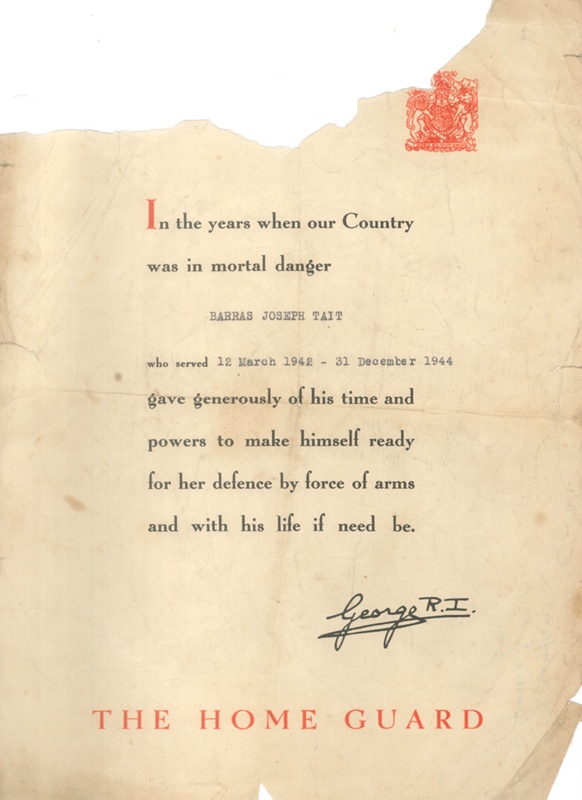 In the years when our Country
was in mortal danger
BARRAS JOSEPH TAIT
who served 12 March 1942 - 31 December 1944
gave generously of his time and
powers to make himself ready
for her defence by force of arms
and with his life if need be.
George R.I.
THE HOME GUARD